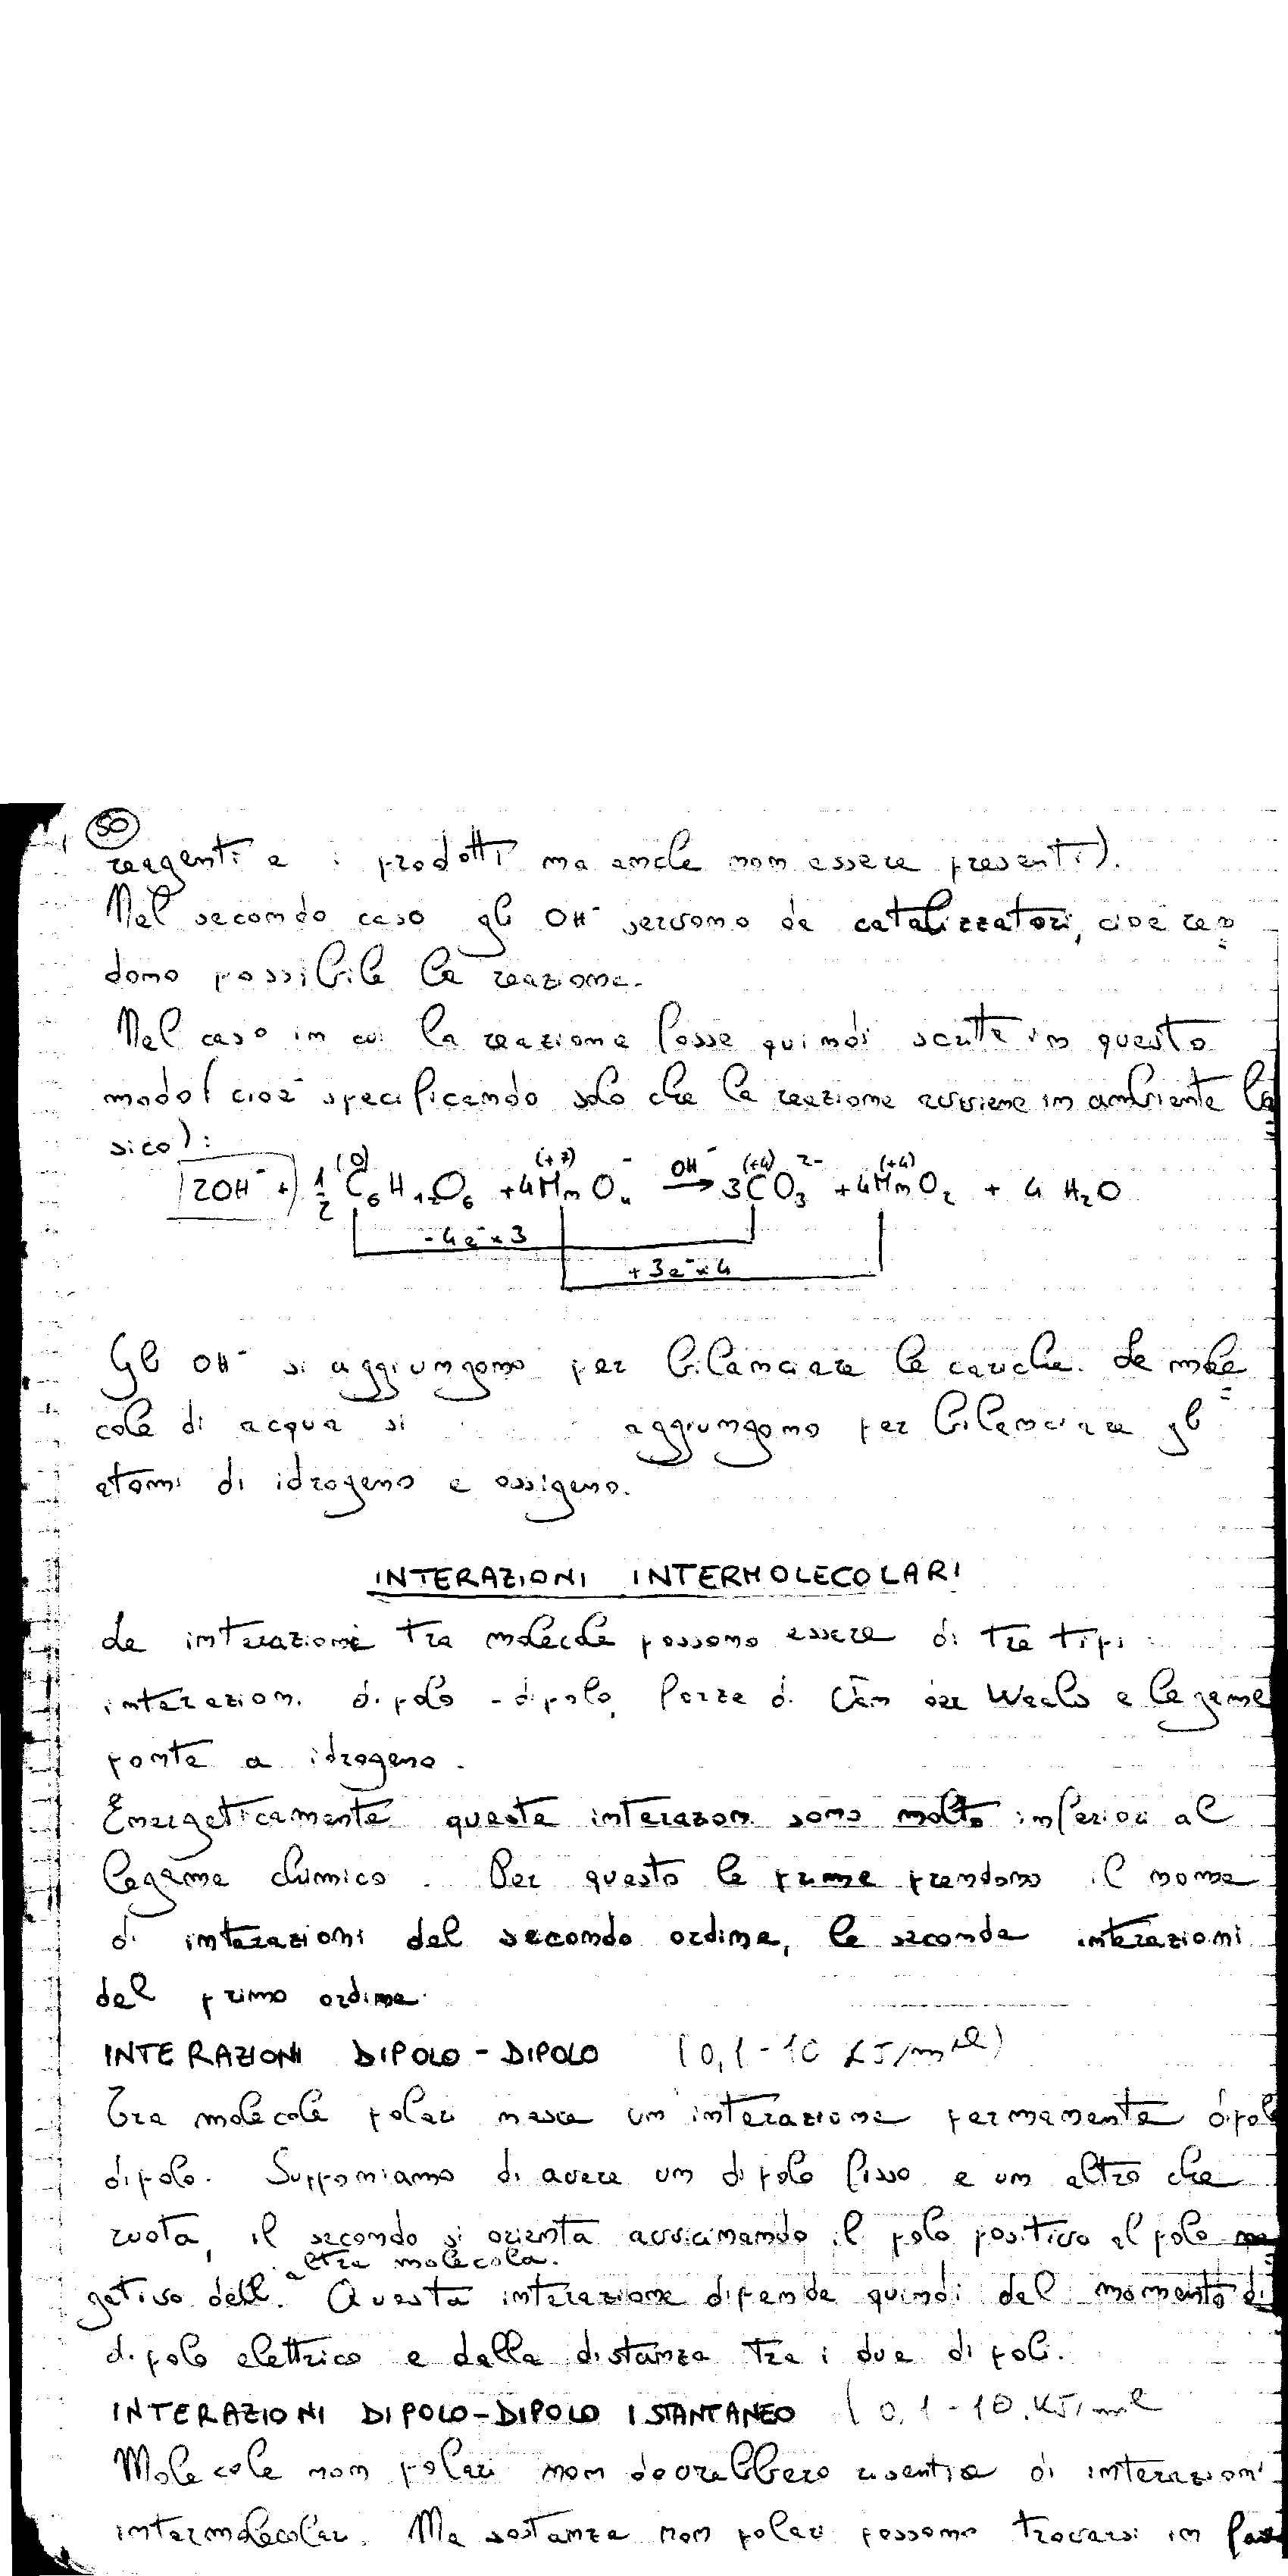 50
reagenti e i prodotti ma anche non essere presenti).
Nel secondo caso gli OH⁻ servono da catalizzatori, cioè ren=
dono possibile la reazione.
Nel caso in cui la reazione fosse quindi scritta in questo
modo (cioè specificando solo che la reazione avviene in ambiente ba=
sico):
(0) (+7) (+4) (+4)
2OH⁻ + 1/2 C₆H₁₂O₆ + 4MnO₄⁻ OH⁻→ 3CO₃²⁻ + 4MnO₂ + 4 H₂O
-4e⁻ x 3
+3e⁻ x 4
Gli OH⁻ si aggiungono per bilanciare le cariche. Le mole=
cole di acqua si aggiungono per bilanciare gli
atomi di idrogeno e ossigeno.
INTERAZIONI INTERMOLECOLARI
Le interazioni tra molecole possono essere di tre tipi:
interazioni dipolo-dipolo, forze di Van der Waals e legame
ponte a idrogeno.
Energeticamente queste interazioni sono molto inferiori al
legame chimico. Per questo le prime prendono il nome
di interazioni del secondo ordine, le seconde interazioni
del primo ordine.
INTERAZIONI DIPOLO-DIPOLO (0,1-10 KJ/mol)
Tra molecole polari nasce un'interazione permanente dipolo
dipolo. Supponiamo di avere un dipolo fisso e un altro che
ruota, il secondo si orienta avvicinando il polo positivo al polo ne
gativo dell'altra molecola. Questa interazione dipende quindi dal momento di
dipolo elettrico e dalla distanza tra i due dipoli.
INTERAZIONI DIPOLO-DIPOLO ISTANTANEO (0,1-10 KJ/mol
Molecole non polari non dovrebbero risentire di interazioni
intermolecolari. Ma sostanze non polari possono trovarsi in fase